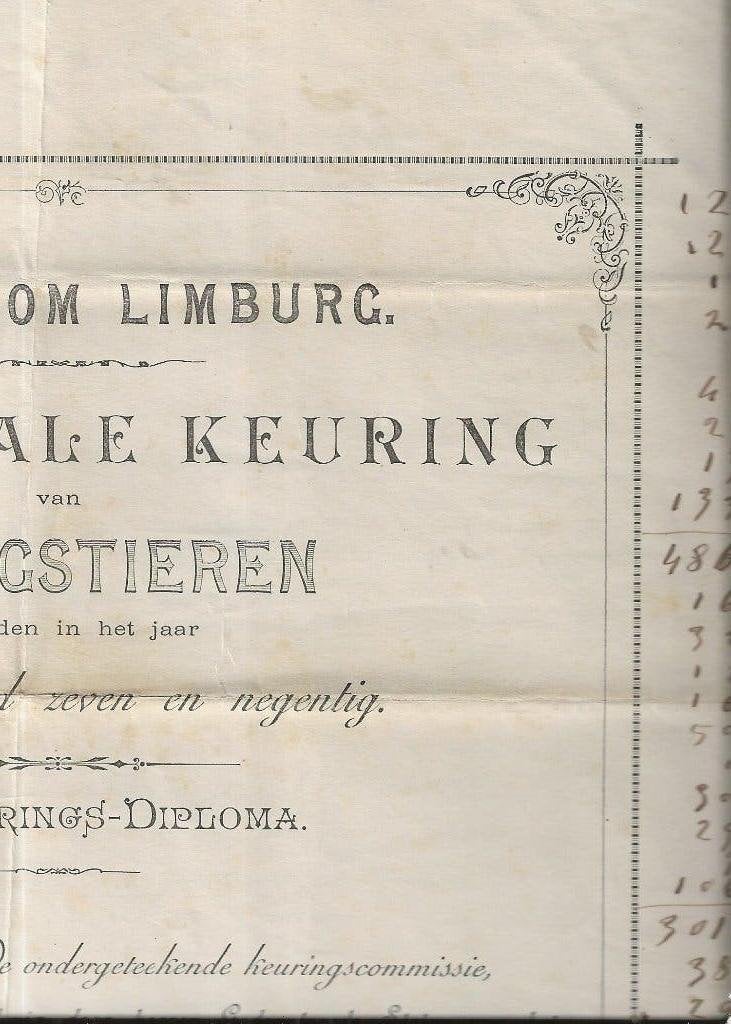 OM LIMBURG.
ALE KEURING
van
GSTIEREN
den in het jaar
d zeven en negentig.
RINGS-DIPLOMA.
De ondergeteekende keuringscommissie,
12
12
1
2
4
2
1
13
486
16
3
1
16
5
30
2
10
301
38